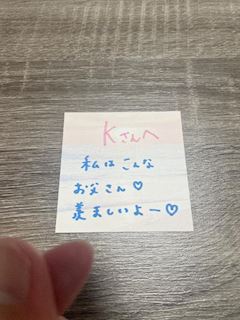 Kさんへ
私はこんな
お父さん♡
羨ましいよー♡